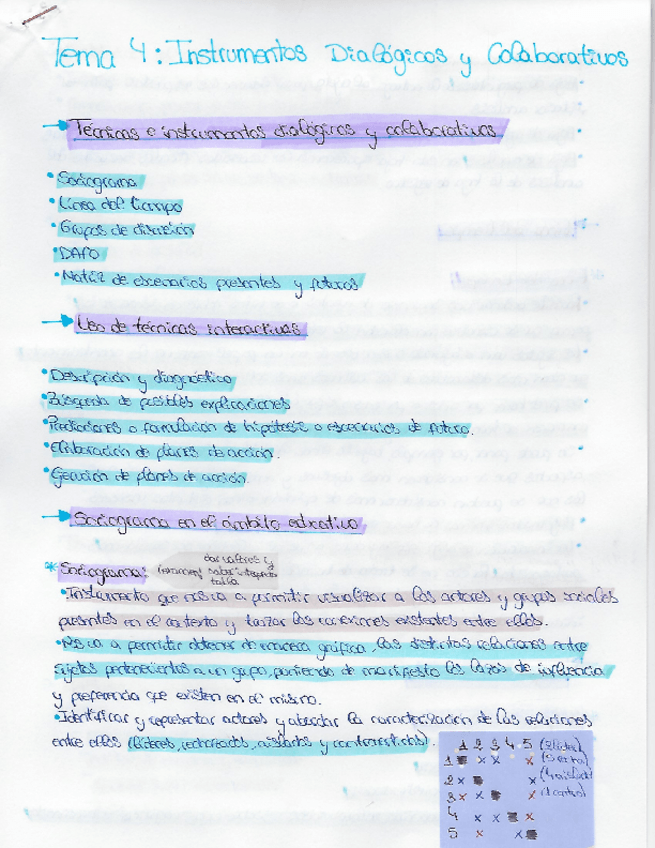 Tema 4: Instrumentos Dialógicos y Colaborativos
Técnicas e instrumentos dialógicos y colaborativos
• Sociograma
• Línea del tiempo
• Grupos de discusión
• DAFO
• Matriz de escenarios presentes y futuros
Uso de técnicas interactivas
• Descripción y diagnóstico
• Búsqueda de posibles explicaciones
• Predicciones o formulación de hipótesis o escenarios de futuro.
• Elaboración de planes de acción.
• Ejecución de planes de acción.
Sociograma en el ámbito educativo
* Sociograma:
• Instrumento que nos va a permitir visualizar a los actores y grupos sociales
presentes en el contexto y trazar las conexiones existentes entre ellos.
• Nos va a permitir obtener de manera gráfica, las distintas relaciones entre
sujetos pertenecientes a un grupo, poniendo de manifiesto los lazos de influencia
y preferencia que existen en el mismo.
• Identificar y representar actores y abordar la caracterización de las relaciones
entre ellos (líderes, rechazados, aislados y controvertidos).
1 2 3 4 5 (2 líder)
1 x x x
2 x x
3 x x x
4 x x x
5 x x